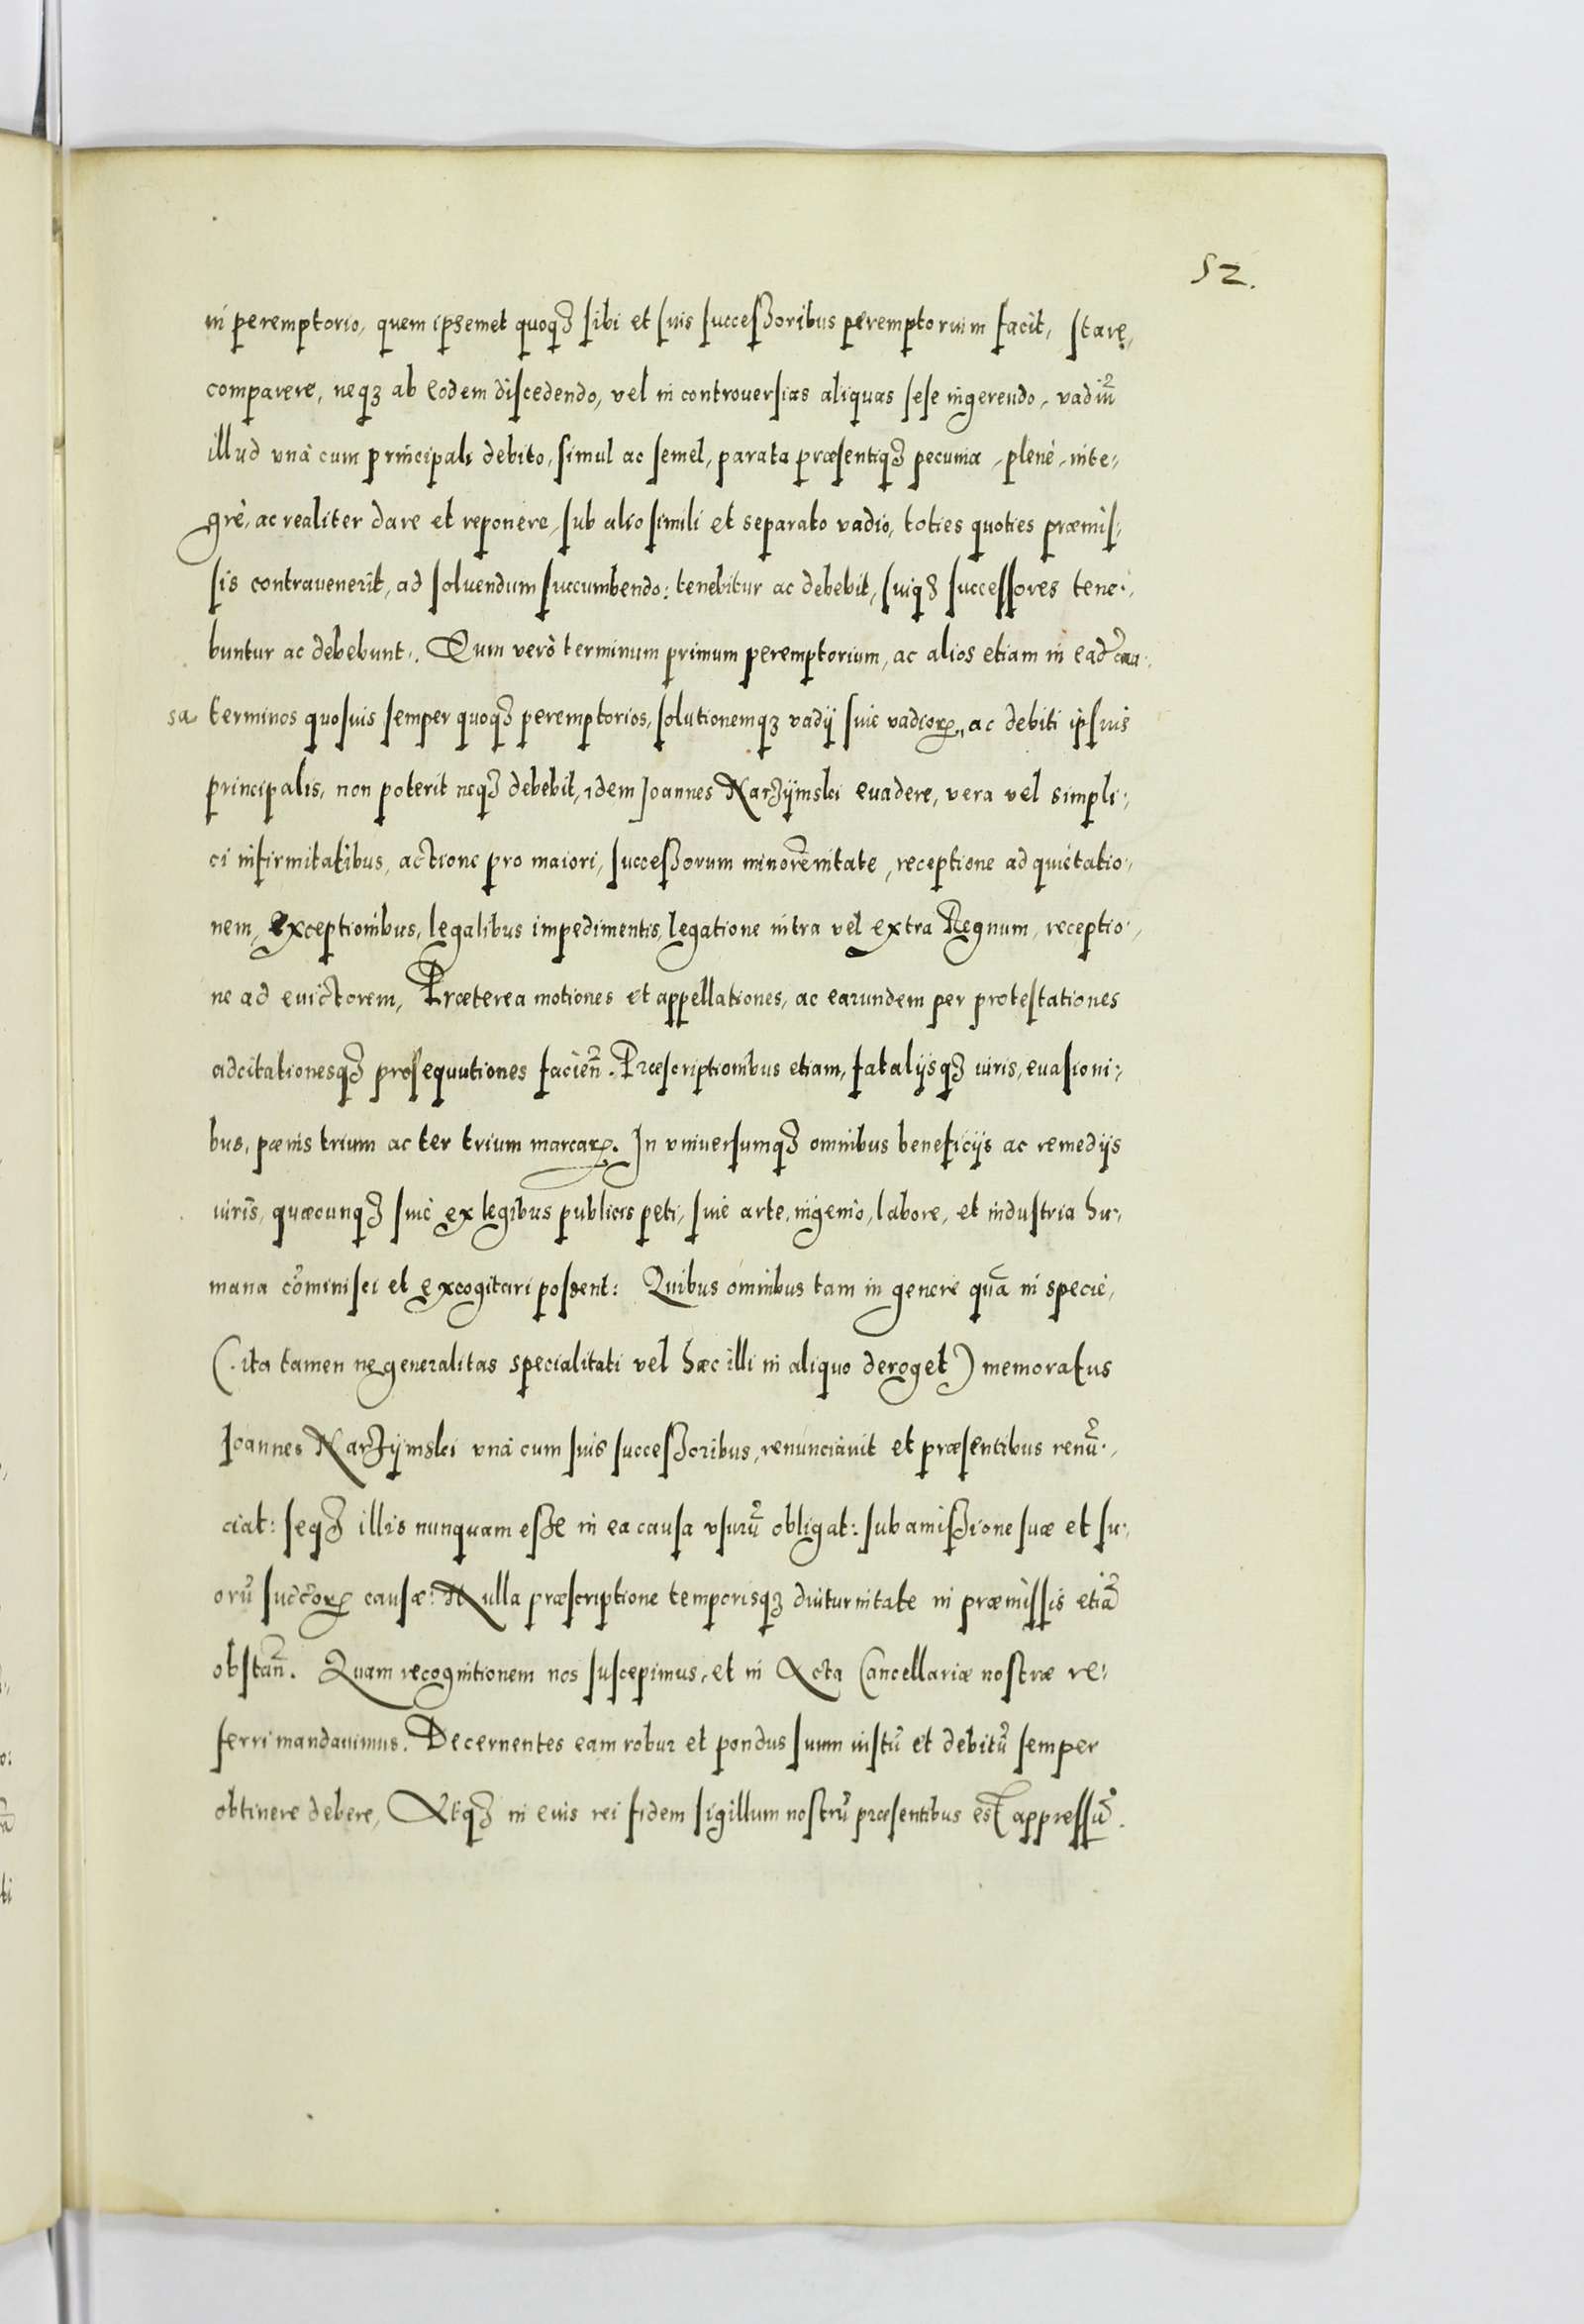 52.
in peremptorio, quem ipsemet quoqꝫ sibi et suis successoribus peremptorium facit, stare,
comparere, neqꝫ ab eodem discedendo, vel in controuersias aliquas sese ingerendo, vadiũ
illud vnà cum principali debito, simul ac semel, parata præsentiqꝫ pecunia, plenè, inte-
grè, ac realiter dare et reponere, sub alio simili et separato vadio, toties quoties præmis-
sis contravenerit, ad soluendum succumbendo: tenebitur ac debebit, suiqꝫ successores tene-
buntur ac debebunt. Cum verò terminum primum peremptorium, ac alios etiam in ead̃ cau-
sa terminos quosuis semper quoqꝫ peremptorios, solutionemqꝫ vadij siue vadioꝝ, ac debiti ipsius
principalis, non poterit neqꝫ debebit, idem Joannes Narzÿmski euadere, vera vel simpli-
ci infirmitatibus, actione pro maiori, successorum minorẽnitate, receptione ad quietatio-
nem, exceptionibus, legalibus impedimentis, legatione intra vel extra Regnum, receptio-
ne ad euictorem, Præterea motiones et appellationes, ac earundem per protestationes
adcitationesqꝫ prosequutiones facien̄. Præscriptionibus etiam, fatalijsqꝫ iuris, euasioni-
bus, pœnis trium ac ter trium marcaꝝ. In vniuersumqꝫ omnibus beneficijs ac remedijs
iuris, quæcunqꝫ siue ex legibus publicis peti, siue arte, ingenio, labore, et industria hu-
mana cõminisci et excogitari possent: Quibus omnibus tam in genere quã in specie,
(. ita tamen ne generalitas specialitati vel hæc illi in aliquo deroget) memoratus
Joannes Narzÿmski vnà cum suis successoribus, renunciauit et præsentibus renũ-
ciat: seqꝫ illis nunquam esse in ea causa vsurũ obligat: sub amissione suæ et su-
orũ succõꝝ causæ: Nulla præscriptione temporisqꝫ diuturnitate in præmissis etiã
obstañ. Quam recognitionem nos suscepimus, et in Acta Cancellariæ nostræ re-
ferri mandauimus. Decernentes eam robur et pondus suum iustũ et debitũ semper
obtinere debere, Atqꝫ in euis rei fidem sigillum nostrũ præsentibus est appressũ.